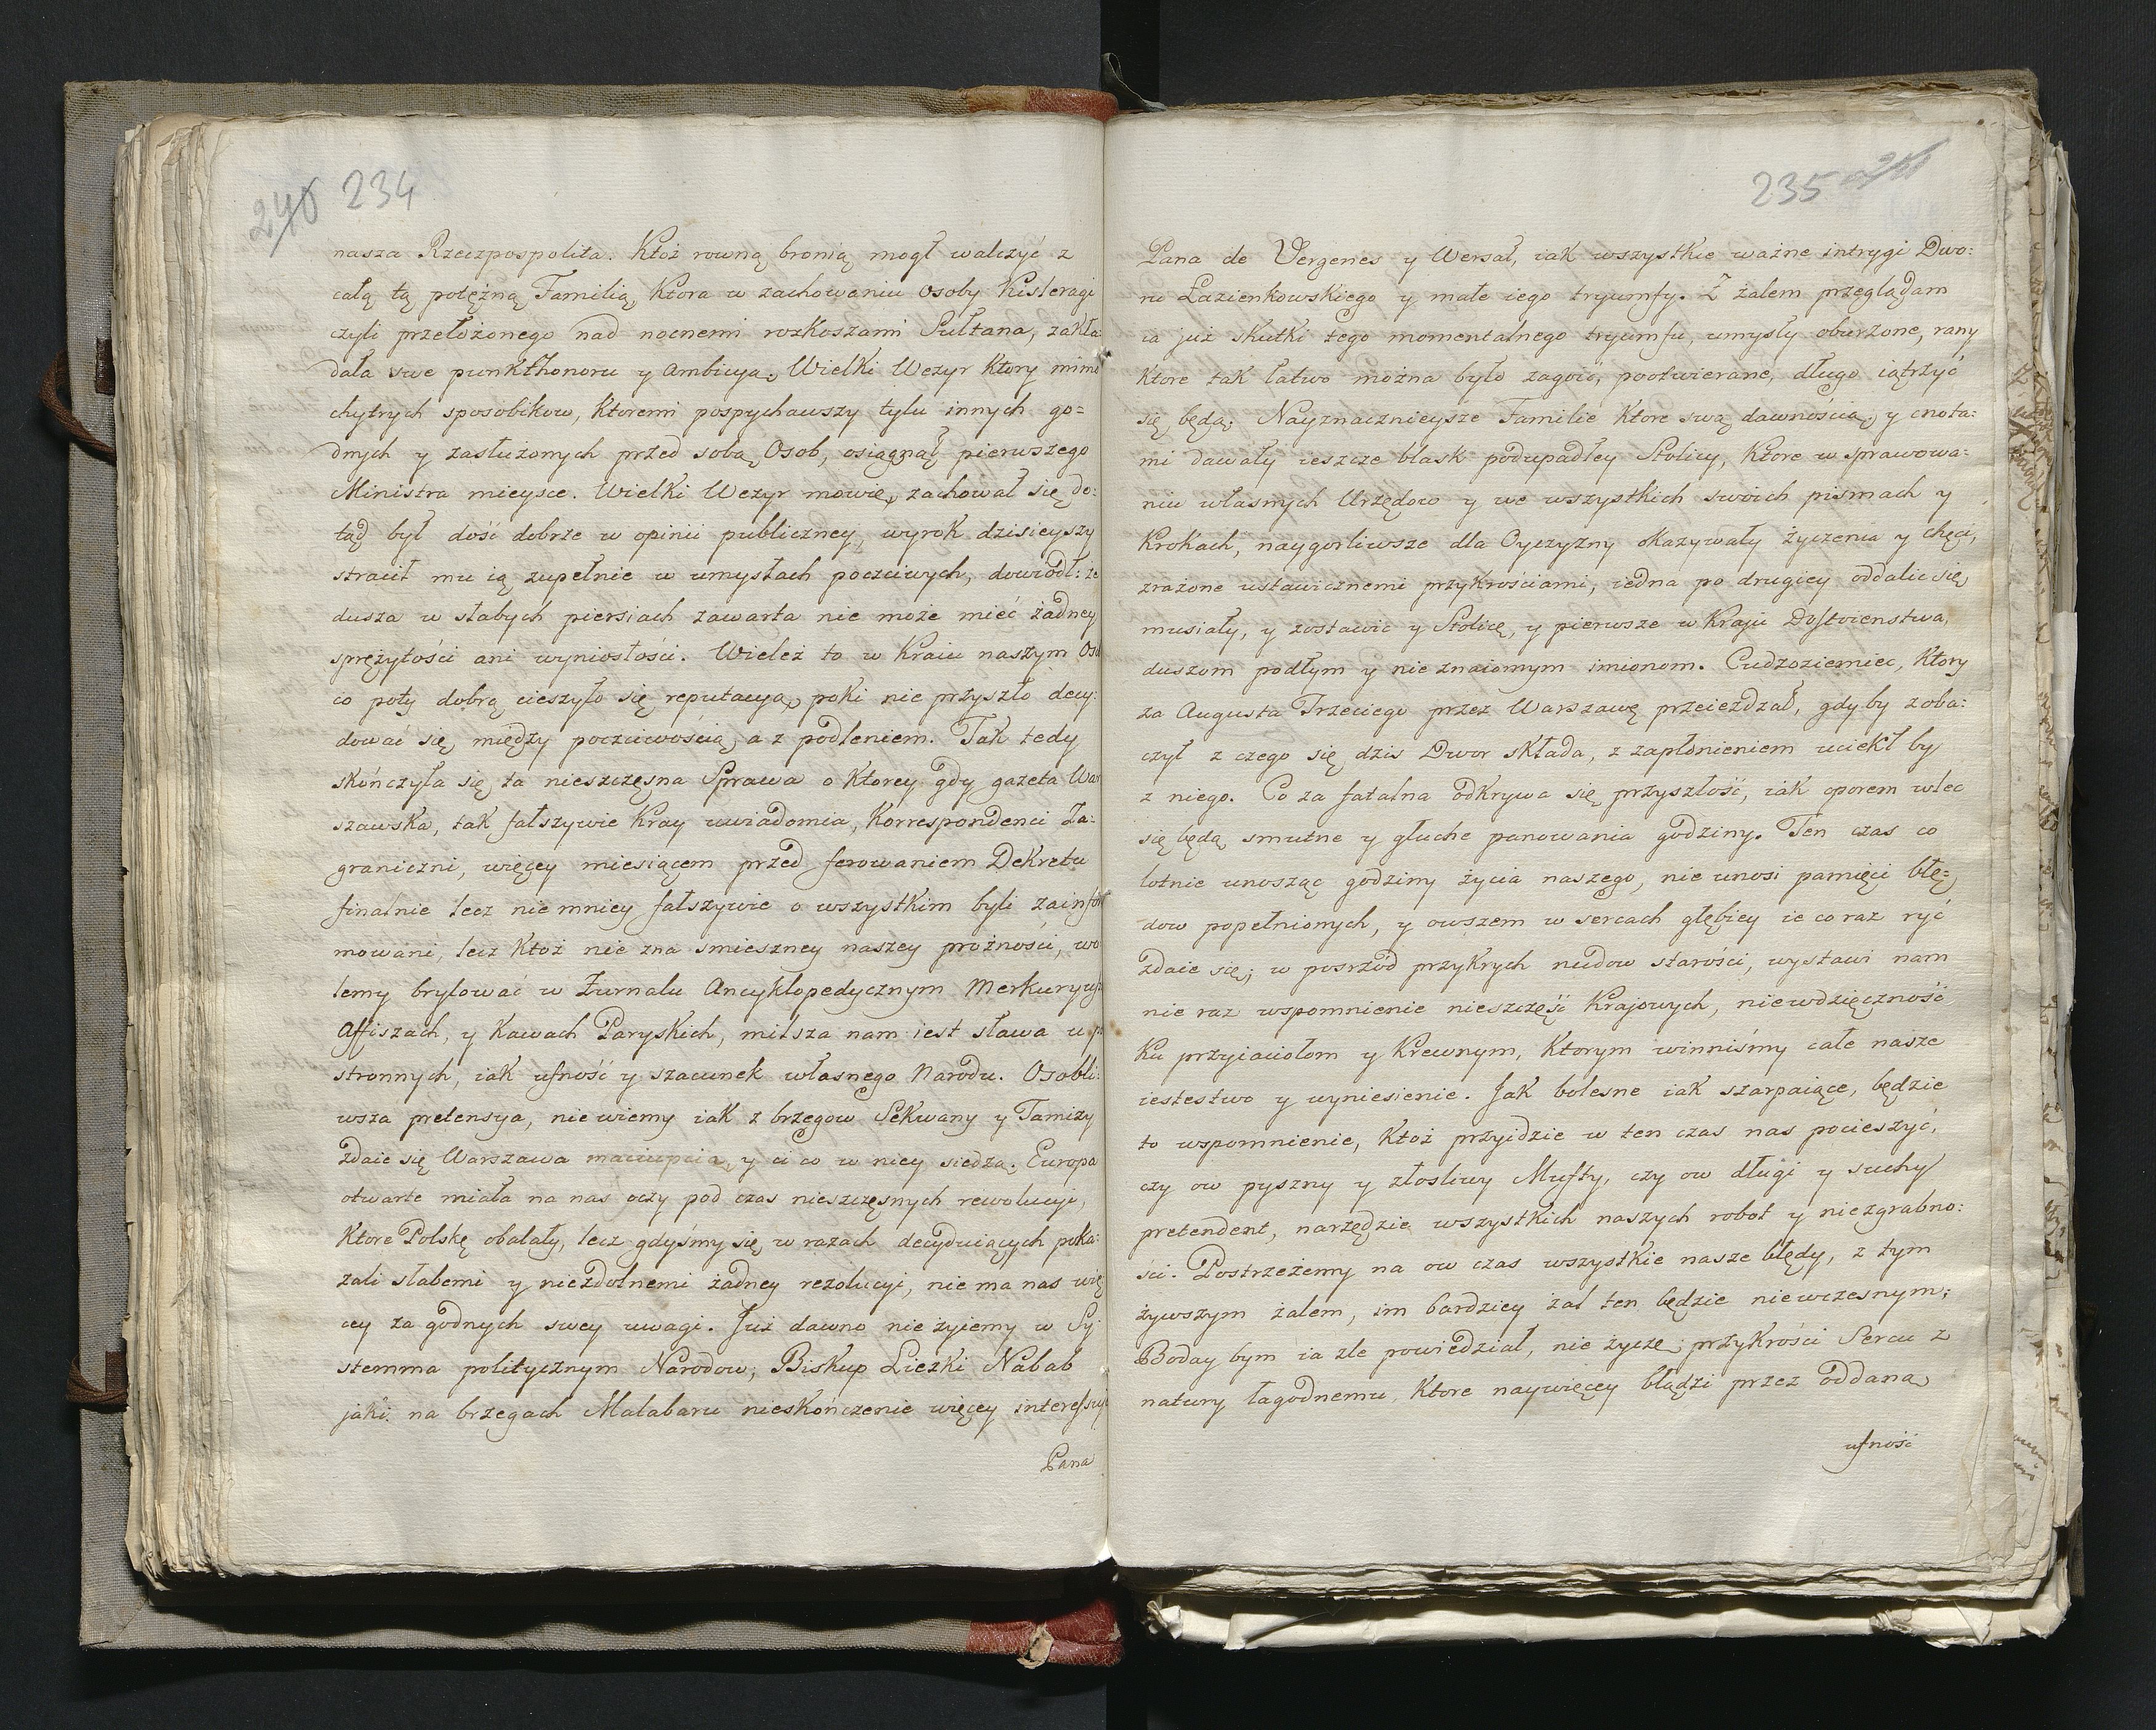 240 234
nasza Rzeczpospolita. Ktoż rowną bronią mogł walczyć z
całą tą potężną Familią, Ktora w zachowaniu Osoby Kisleragi
czyli przełożonego nad nocnemi rozkoszami Sułtana, zakła
dała swe punkthonoru y Ambicyą. Wielki Wezyr Ktory mimo
chytrych sposobikow, Ktoremi pospychawszy tylu innych go=
dnych y zasłużonych przed sobą Osob, osiągnął pierwszego
Ministra mieysce. Wielki Wezyr mowię, zachował się do:
tąd był dość dobrze w opinii publiczney, wyrok dzisieyszy
stracił mu ią zupełnie w umysłach poczciwych, dowiodł: że
dusza w słabych piersiach zawarta nie może mieć żadney
sprężytości ani wyniosłości. Wieleż to w Kraiu naszym Oso
co poty dobrą cieszyło się reputacyą, poki nie przyszło decy:
dować się między poczciwością, a z podleniem. Tak tedy
skończyła się ta nieszczęsna Sprawa o Ktorey gdy gazeta War
szawska, tak fałszywie Kray uwiadomia, Korrespondenci Za=
graniczni, więcey miesiącem przed ferowaniem Dekretu
finalnie lecz niemniey fałszywie o wszystkim byli zainfor
mowani, lecz Ktoż nie zna smieszney naszey prożności, wo
lemy brylować w Żurnalu Ancyklopedycznym Merkuryusz
Affiszach, y Kawach Paryskich, milsza nam iest sława u po
stronnych, iak ufność y szacunek własnego Narodu. Osobli:
wsza pretensya, nie wiemy iak z brzegow Sekwany y Tamizy
zdaie się Warszawa maciupcią, y ci co w niey siedzą. Europa
otwarte miała na nas oczy pod czas nieszczęsnych rewolucyi,
Ktore Polskę obalały, lecz gdyśmy się w razach decyduiących poka:
zali słabemi y niezdolnemi żadney rezolucyi, nie ma nas wię
cey za godnych swey uwagi. Już dawno nie żyiemy w Sy:
stemma politycznym Narodow, Biskup Liezki Nabab
jaki. na brzegach Malabaru nieskończenie więcey interessuje
Pana
235 241
Pana de Vergenes y Wersal, iak wszystkie ważne intrygi Dwo:
ru Łazienkowskiego y małe iego tryumfy. Z żalem przeglądam
ia już skutki tego momentalnego tryumfu, umysły oburzone, rany
Ktore tak łatwo można było zagoić, pootwierane, długo iątrzyć
się będą. Nayznacznieysze Familie Ktore swą dawnością, y cnota:
mi dawały ieszcze blask podupadłey Stolicy, Ktore w sprawowa:
niu własnych Urzędow y we wszystkich swoich pismach y
Krokach, naygorliwsze dla Oyczyzny okazywały życzenia y chęci,
zrażone ustawicznemi przykrościami, iedna po drugiey oddalić się
musiały, y zostawić y Stolicę, y pierwsze w Kraju Dostoienstwa,
duszom podłym y nie znaiomym imionom. Cudzoziemiec, Ktory
za Augusta Trzeciego przez Warszawę przeieżdzał, gdyby zoba:
czył z czego się dzis Dwor składa, z zapłonieniem uciekł by
z niego. Co za fatalna odkrywa się przyszłość, iak oporem wlec
się będą smutne y głuche panowania godziny. Ten czas co
lotnie unosząc godziny życia naszego, nie unosi pamięci błę=
dow popełnionych, y owszem w sercach głębiey ie co raz ryć
zdaie się; w posrzod przykrych nudow starości, wystawi nam
nie raz wspomnienie nieszczęść Krajowych, niewdzięczność
Ku przyiaciołom y Krewnym, Ktorym winniśmy całe nasze
iestestwo y wyniesienie. Jak bolesne iak szarpaiące, będzie
to wspomnienie, Ktoż przyidzie w ten czas nas pocieszyć,
czy ow pyszny y złosliwy Mufty, czy ow długi y suchy
pretendent, narzędzie wszystkich naszych robot y niezgrabno:
ści. Postrzeżemy na ow czas wszystkie nasze błędy, z tym
żywszym żalem, im bardziey żal ten będzie niewczesnym;
Boday bym ia zle powiedział, nie życzę przykrości Sercu z
natury łagodnemu, Ktore naywięcey błądzi przez oddaną
ufność